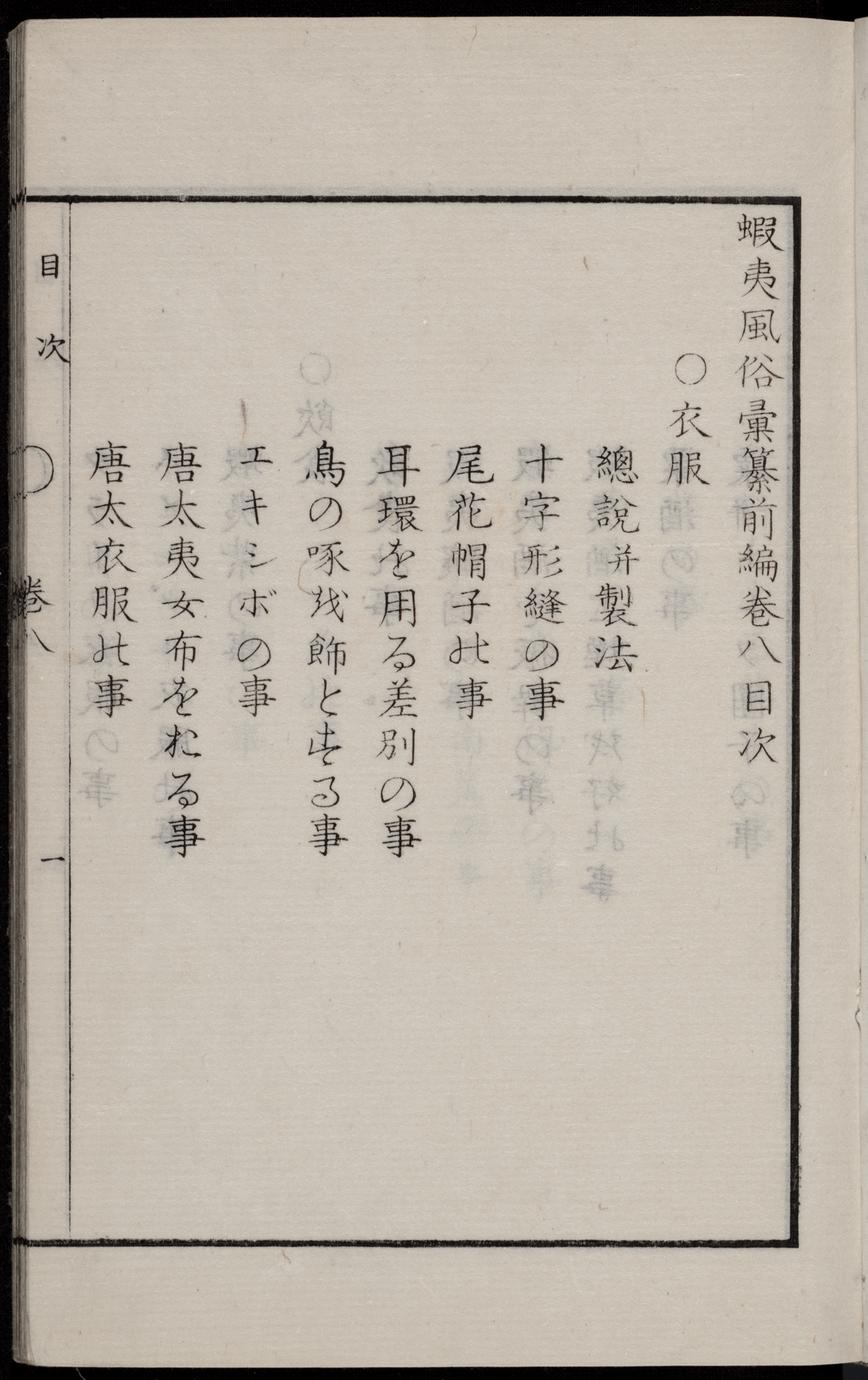 蝦夷風俗彙纂前編巻八目次
○衣服
總說并製法
十字形縫の事
尾花帽子の事
耳環を用る差別の事
鳥の啄を飾とする事
エキシボの事
唐太夷女布をおる事
唐太衣服の事
目次
巻八
一